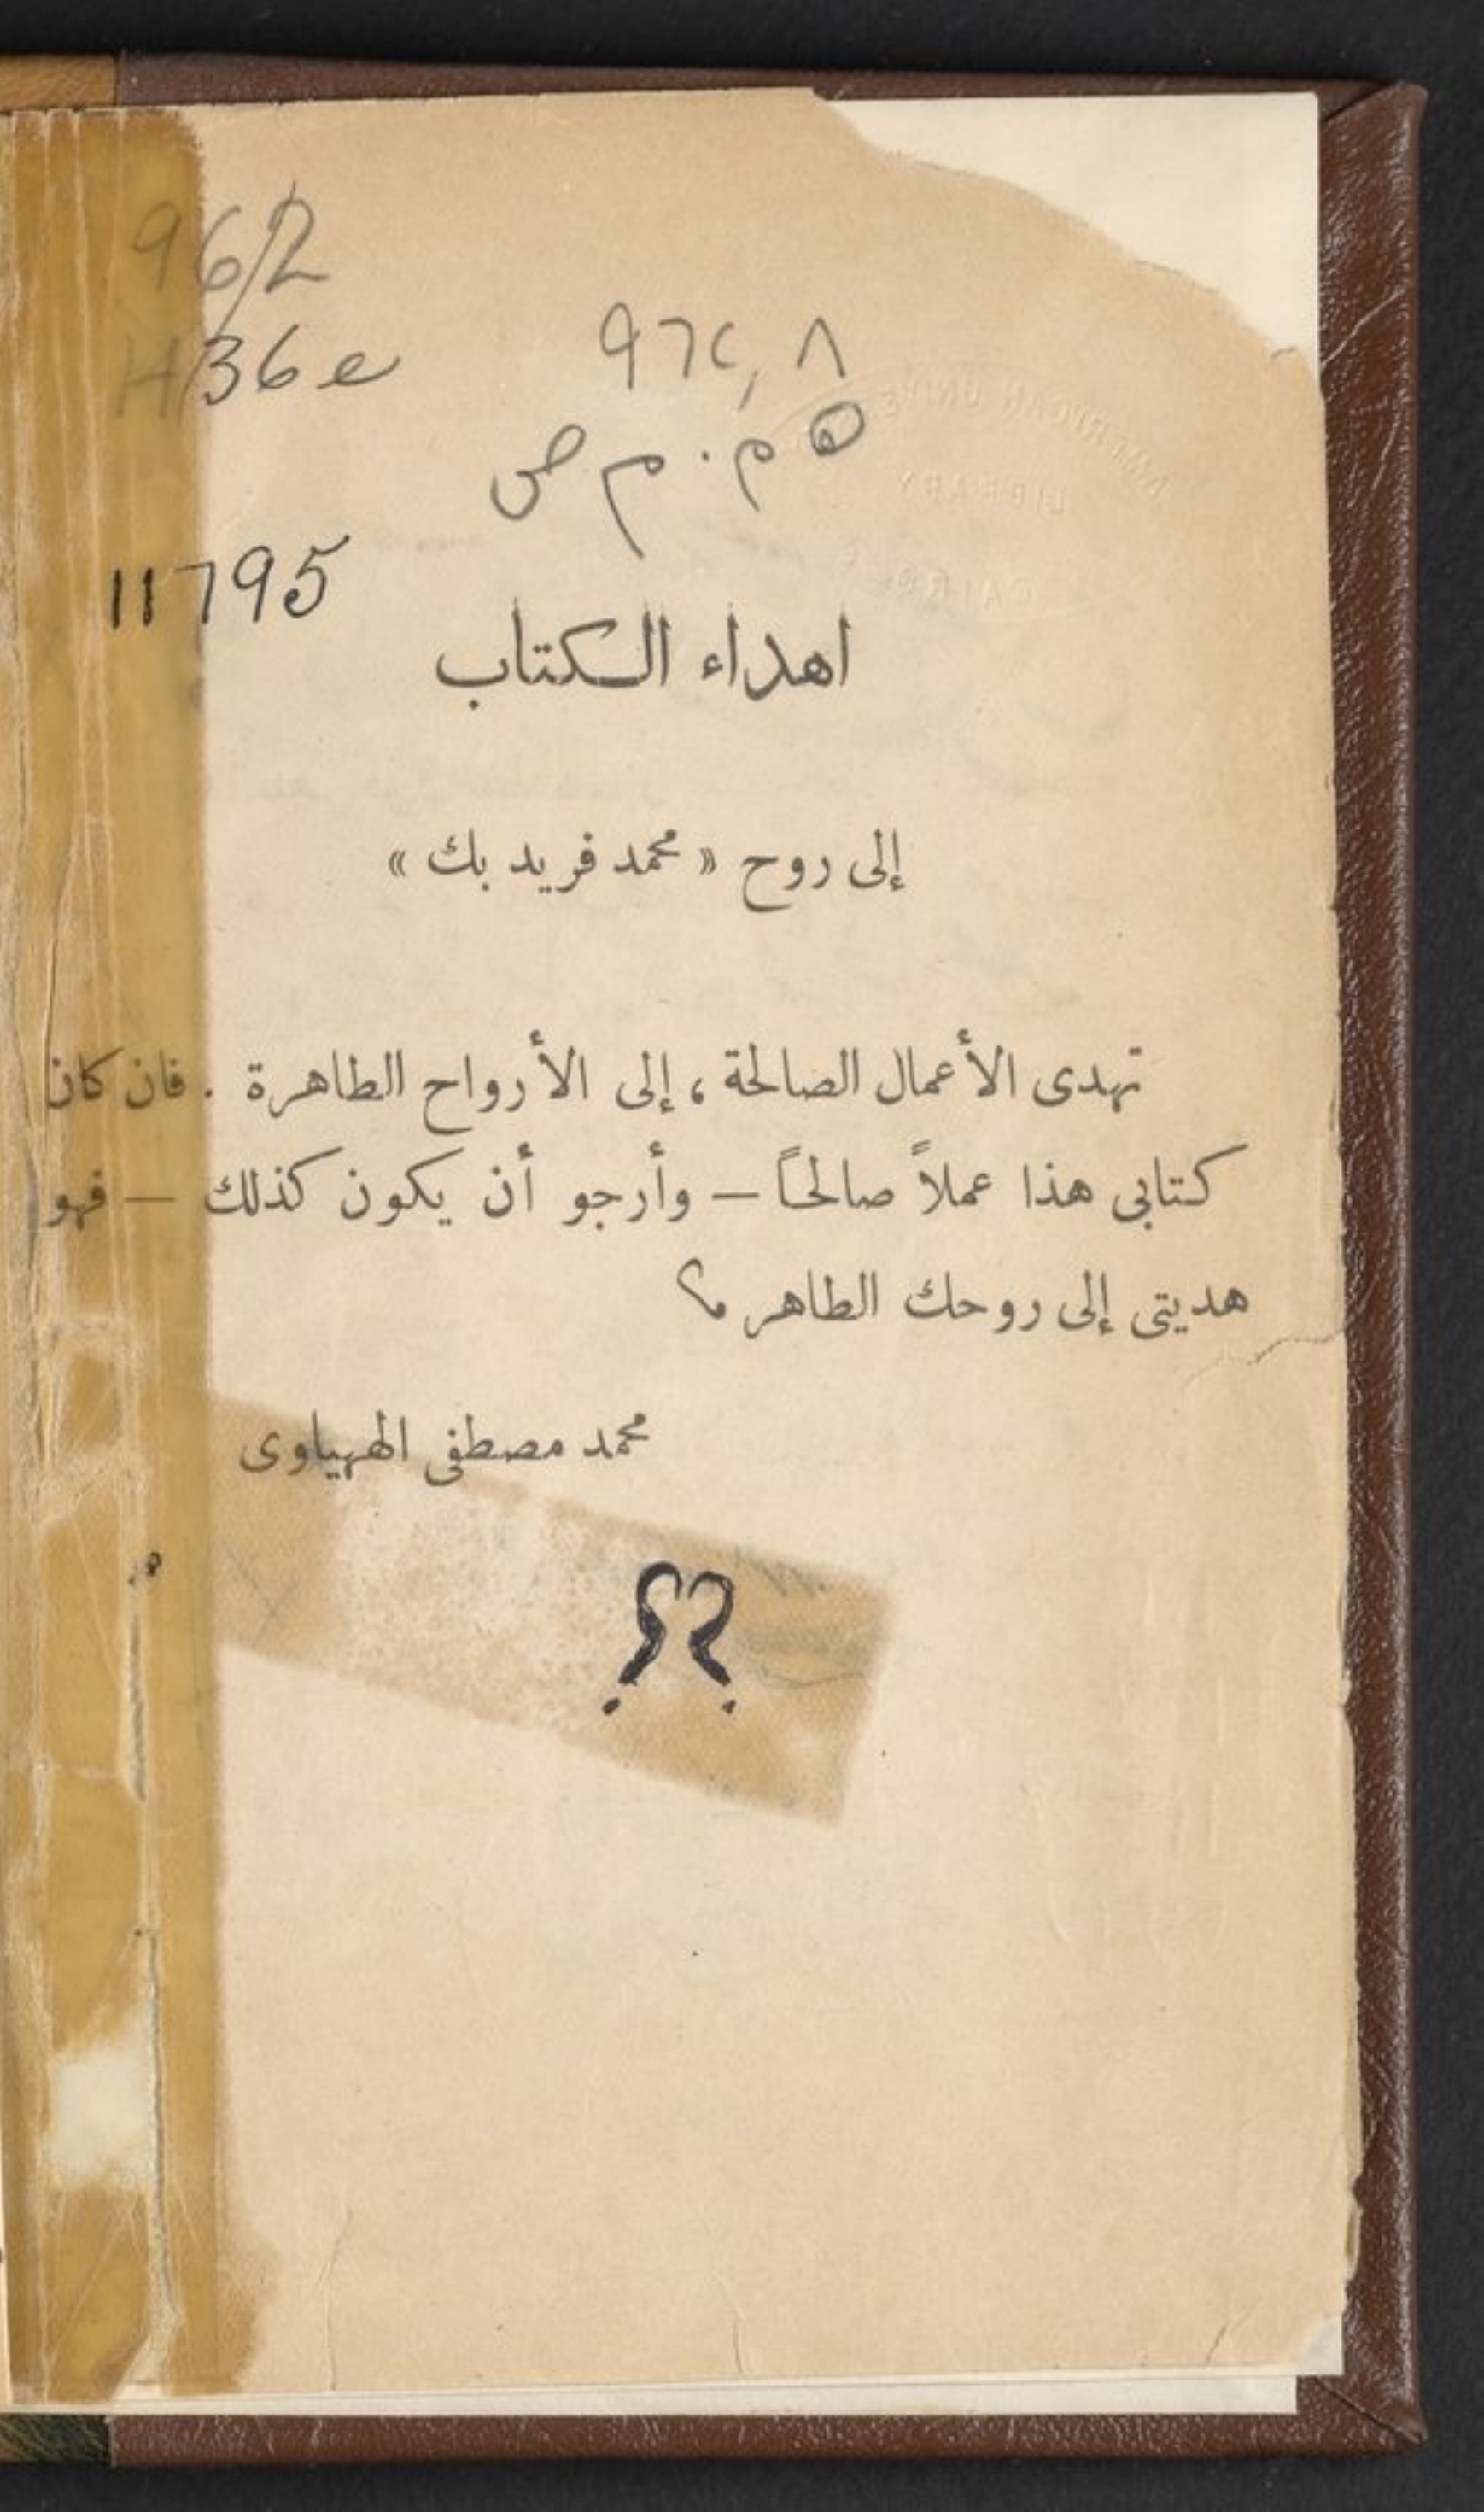 962
H36e
٩٦٢,٨
ه م . م ص
11795
AMERICAN UNIVE
LIBRARY
CAIRO
اهداء الكتاب
إلى روح « محمد فريد بك »
تهدى الأعمال الصالحة ، إلى الأرواح الطاهرة . فان كان
كتابى هذا عملاً صالحاً – وأرجو أن يكون كذلك – فهو
هديتى إلى روحك الطاهر م؟
محمد مصطفى الههياوى
؟?